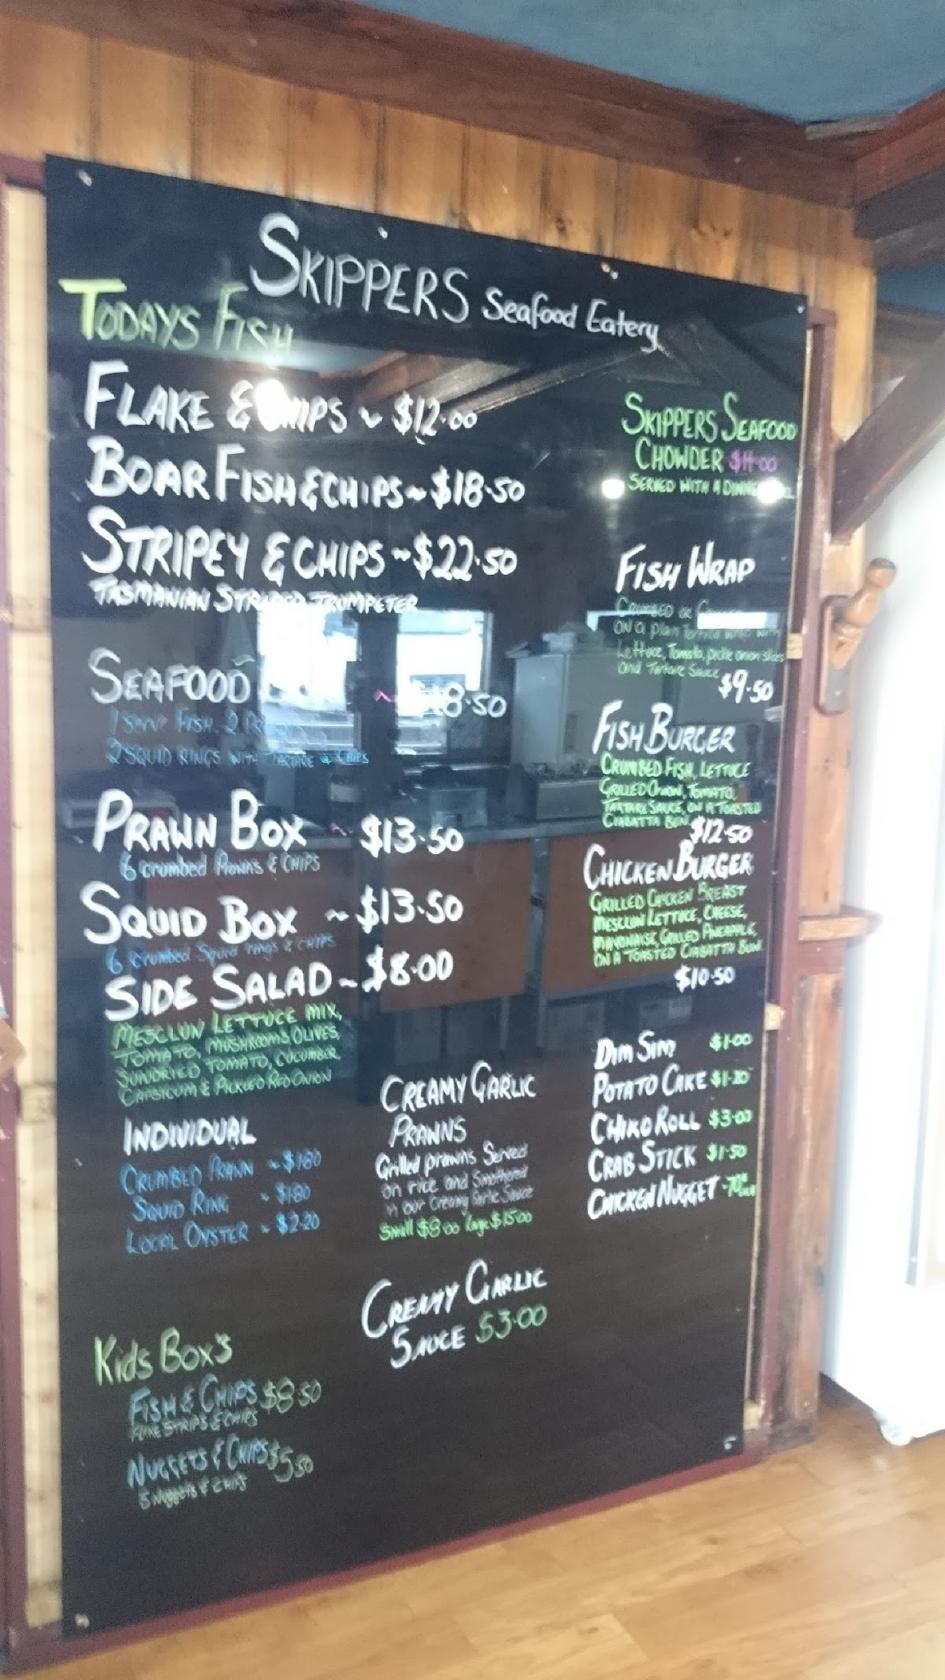 SKIPPERS Seafood Eatery
TODAYS FISH
FLAKE & CHIPS ~ $12.00
BOAR FISH & CHIPS ~ $18.50
STRIPEY & CHIPS ~ $22.50
TASMANIAN STRIPED TRUMPETER
SEAFOOD
1 FISH, 2
2 SQUID RINGS WITH TARTARE & CHIPS
PRAWN BOX ~ $13.50
6 crumbed Prawns & CHIPS
SQUID BOX ~ $13.50
6 crumbed Squid rings & CHIPS
SIDE SALAD ~ $8.00
MESCLUN LETTUCE MIX,
TOMATO, MUSHROOMS OLIVES,
SUNDRIED TOMATO, CUCUMBER
CAPSICUM & PICKLED RED ONION
INDIVIDUAL
CRUMBED PRAWN ~ $1.80
SQUID RING ~ $1.80
LOCAL OYSTER ~ $2.20
KIDS BOX'S
FISH & CHIPS $8.50
FLAKE STRIPS & CHIPS
NUGGETS & CHIPS $5.50
5 Nuggets & CHIPS
CREAMY GARLIC
PRAWNS
Grilled prawns Served
on rice and Smothered
in our Creamy Garlic Sauce
Small $8.00 Large $15.00
CREAMY GARLIC
SAUCE $3.00
SKIPPERS SEAFOOD
CHOWDER $11.00
SERVED WITH A
FISH WRAP
CRUMBED OR
ON a plain Tortilla with
Lettuce, Tomato, pickle onion
and Tartare Sauce
$9.50
FISH BURGER
CRUMBED FISH, LETTUCE
GRILLED ONION, TOMATO,
TARTARE SAUCE, ON A TOASTED
CIABATTA BUN $12.50
CHICKEN BURGER
GRILLED CHICKEN BREAST
MESCLUN LETTUCE, CHEESE,
MAYONAISE, GRILLED PINEAPPLE,
ON A TOASTED CIABATTA BUN
$10.50
DIM SIM $1.00
POTATO CAKE
CHIKO ROLL $3.00
CRAB STICK $1.50
CHICKEN NUGGET